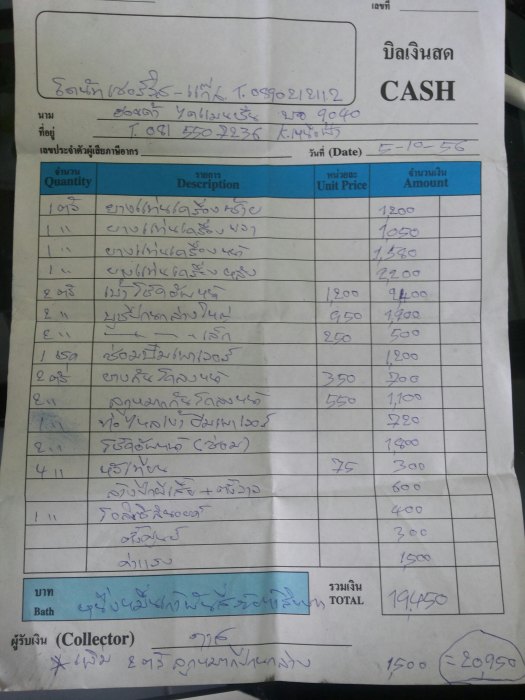 เลขที่
บิลเงินสด
CASH
T. 0890212112
นาม ฮอนด้า 9040
ที่อยู่ T. 081 550 2236
เลขประจำตัวผู้เสียภาษีอากร วันที่ (Date) 5-10-56
จำนวน รายการ หน่วยละ จำนวนเงิน
Quantity Description Unit Price Amount
1 ตัว ยางแท่นเครื่องซ้าย 1,200
1 " ยางแท่นเครื่องขวา 1050
1 " ยางแท่นเครื่องหน้า 1,380
1 " ยางแท่นเครื่องหลัง 2,200
2 ตัว เบ้าโช๊คอัพหน้า 1,200 2,400
2 " บูชปีกนกล่างใหญ่ 950 1,900
2 " เล็ก 250 500
1 ซ่อมปั๊มเพาเวอร์ 1,200
2 ตัว ยางกันโคลงหน้า 350 700
2 " ลูกหมากกันโคลงหน้า 550 1,100
1 " ปั๊มเพาเวอร์ 720
2 " โช๊คอัพหน้า (ซ่อม) 1,800
4 " หัวเทียน 75 300
ล้างปีกผีเสื้อ + 600
1 " 400
ตั้งศูนย์ 300
ค่าแรง 1,500
บาท รวมเงิน
Bath หนึ่งหมื่นเก้าพันสี่ร้อยห้าสิบบาท TOTAL 19,450
ผู้รับเงิน (Collector)
* เพิ่ม 2 ตัว ลูกหมากปีกนกล่าง 1500 = 20,950